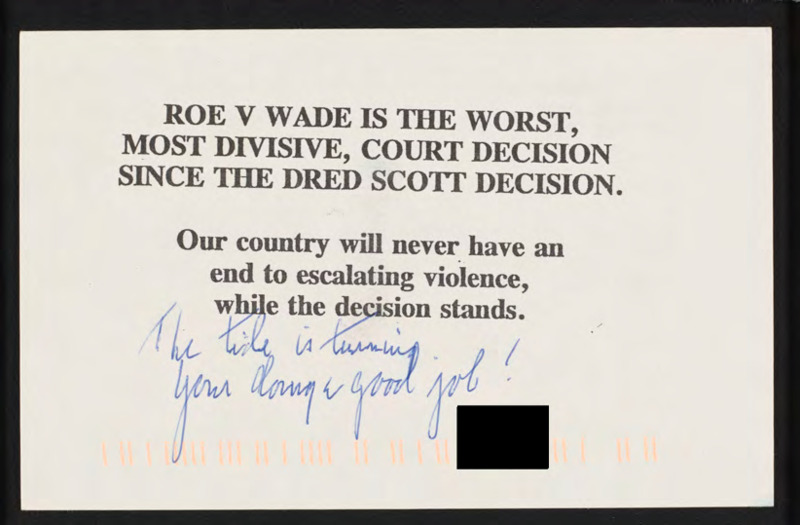 ROE V WADE IS THE WORST,
MOST DIVISIVE, COURT DECISION
SINCE THE DRED SCOTT DECISION.
Our country will never have an
end to escalating violence,
while the decision stands.
The tide is turning
your doing a good job!